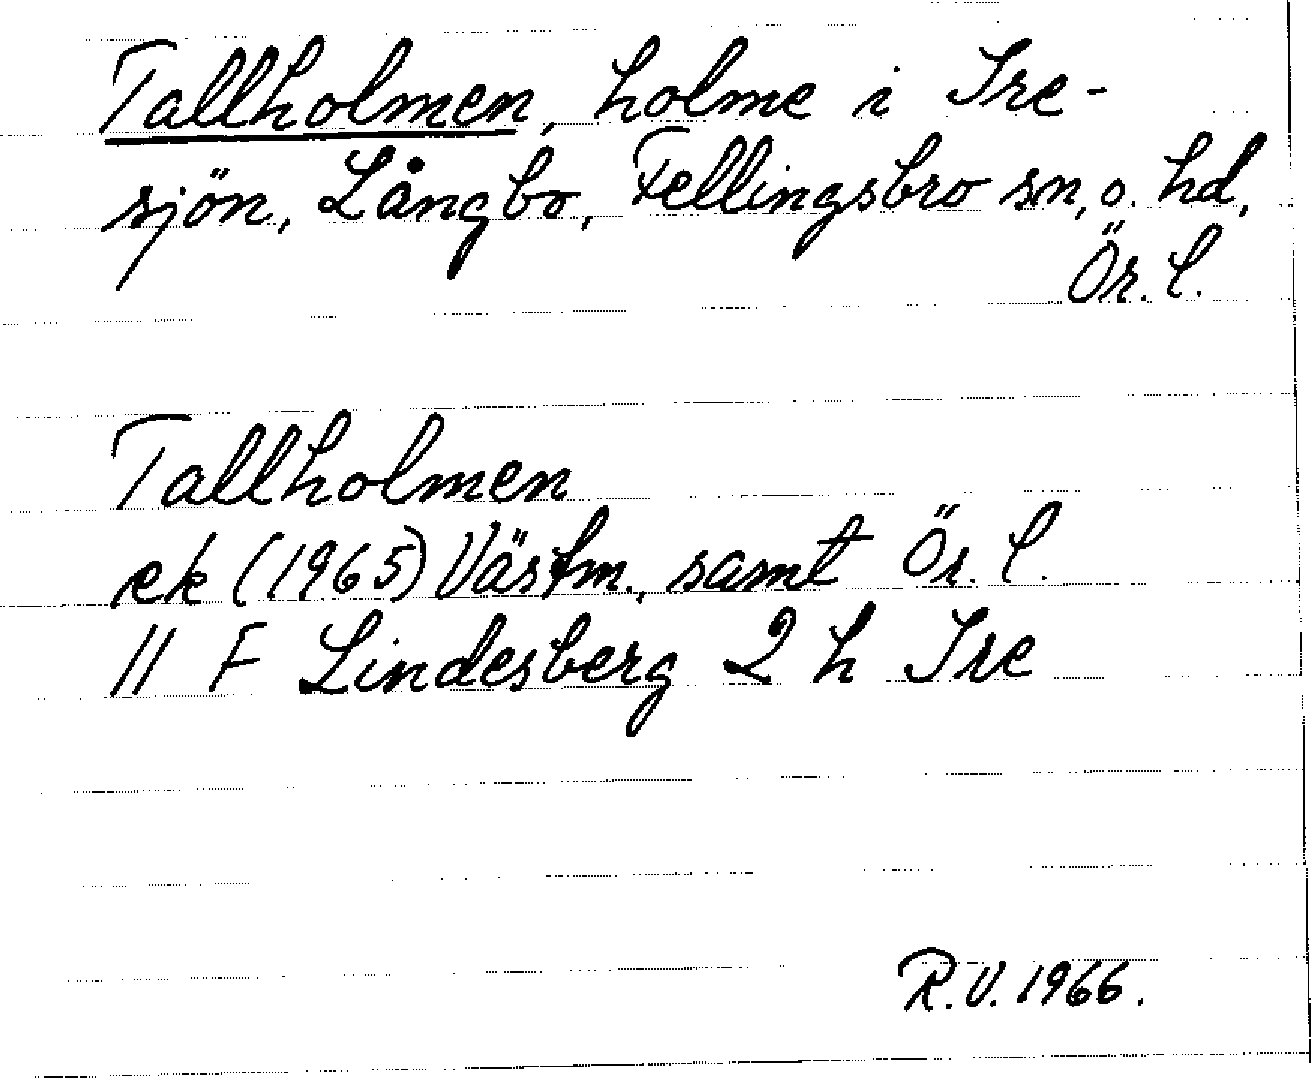 Tallholmen, holme i Ire-
sjön, Långbo, Fellingsbro sn, o. hd,
Ör. l.
Tallholmen
ek (1965) Västm., samt Ör. l.
11 F Lindesberg 2 h Ire
R.V. 1966.